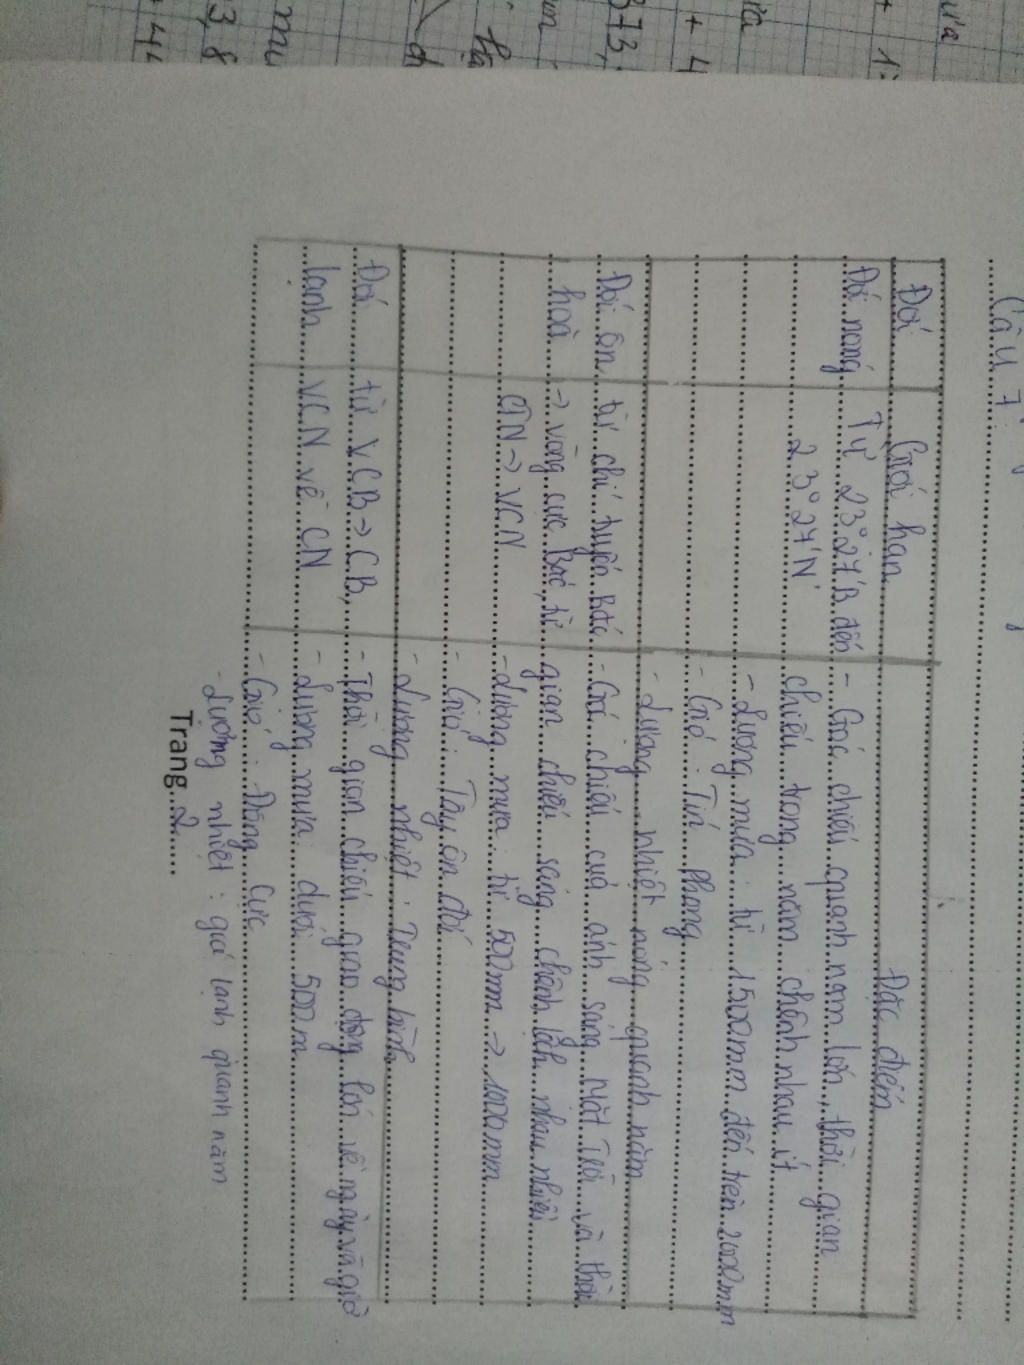 Câu 7:
Đới Giới hạn Đặc điểm
Đới nóng Từ 23°27'B đến - Góc chiếu quanh năm lớn, thời gian
23°27'N chiếu trong năm chênh nhau ít
- Lượng mưa: từ 1500mm đến trên 2000mm
- Gió: Tín phong
- Lượng nhiệt nóng quanh năm
Đới ôn từ chí tuyến Bắc - Góc chiếu của ánh sáng Mặt Trời và thời
hoà -> vòng cực Bắc, từ gian chiếu sáng chênh lệch nhau nhiều
CTN -> VCN - Lượng mưa: từ 500mm -> 1000mm
- Gió: Tây ôn đới
- Lượng nhiệt: Trung bình
Đới từ VCB -> CB, - Thời gian chiếu giao động lớn về ngày và giờ
lạnh VCN về CN - Lượng mưa: dưới 500m
- Gió: Đông Cực
- Lượng nhiệt: giá lạnh quanh năm
Trang 2